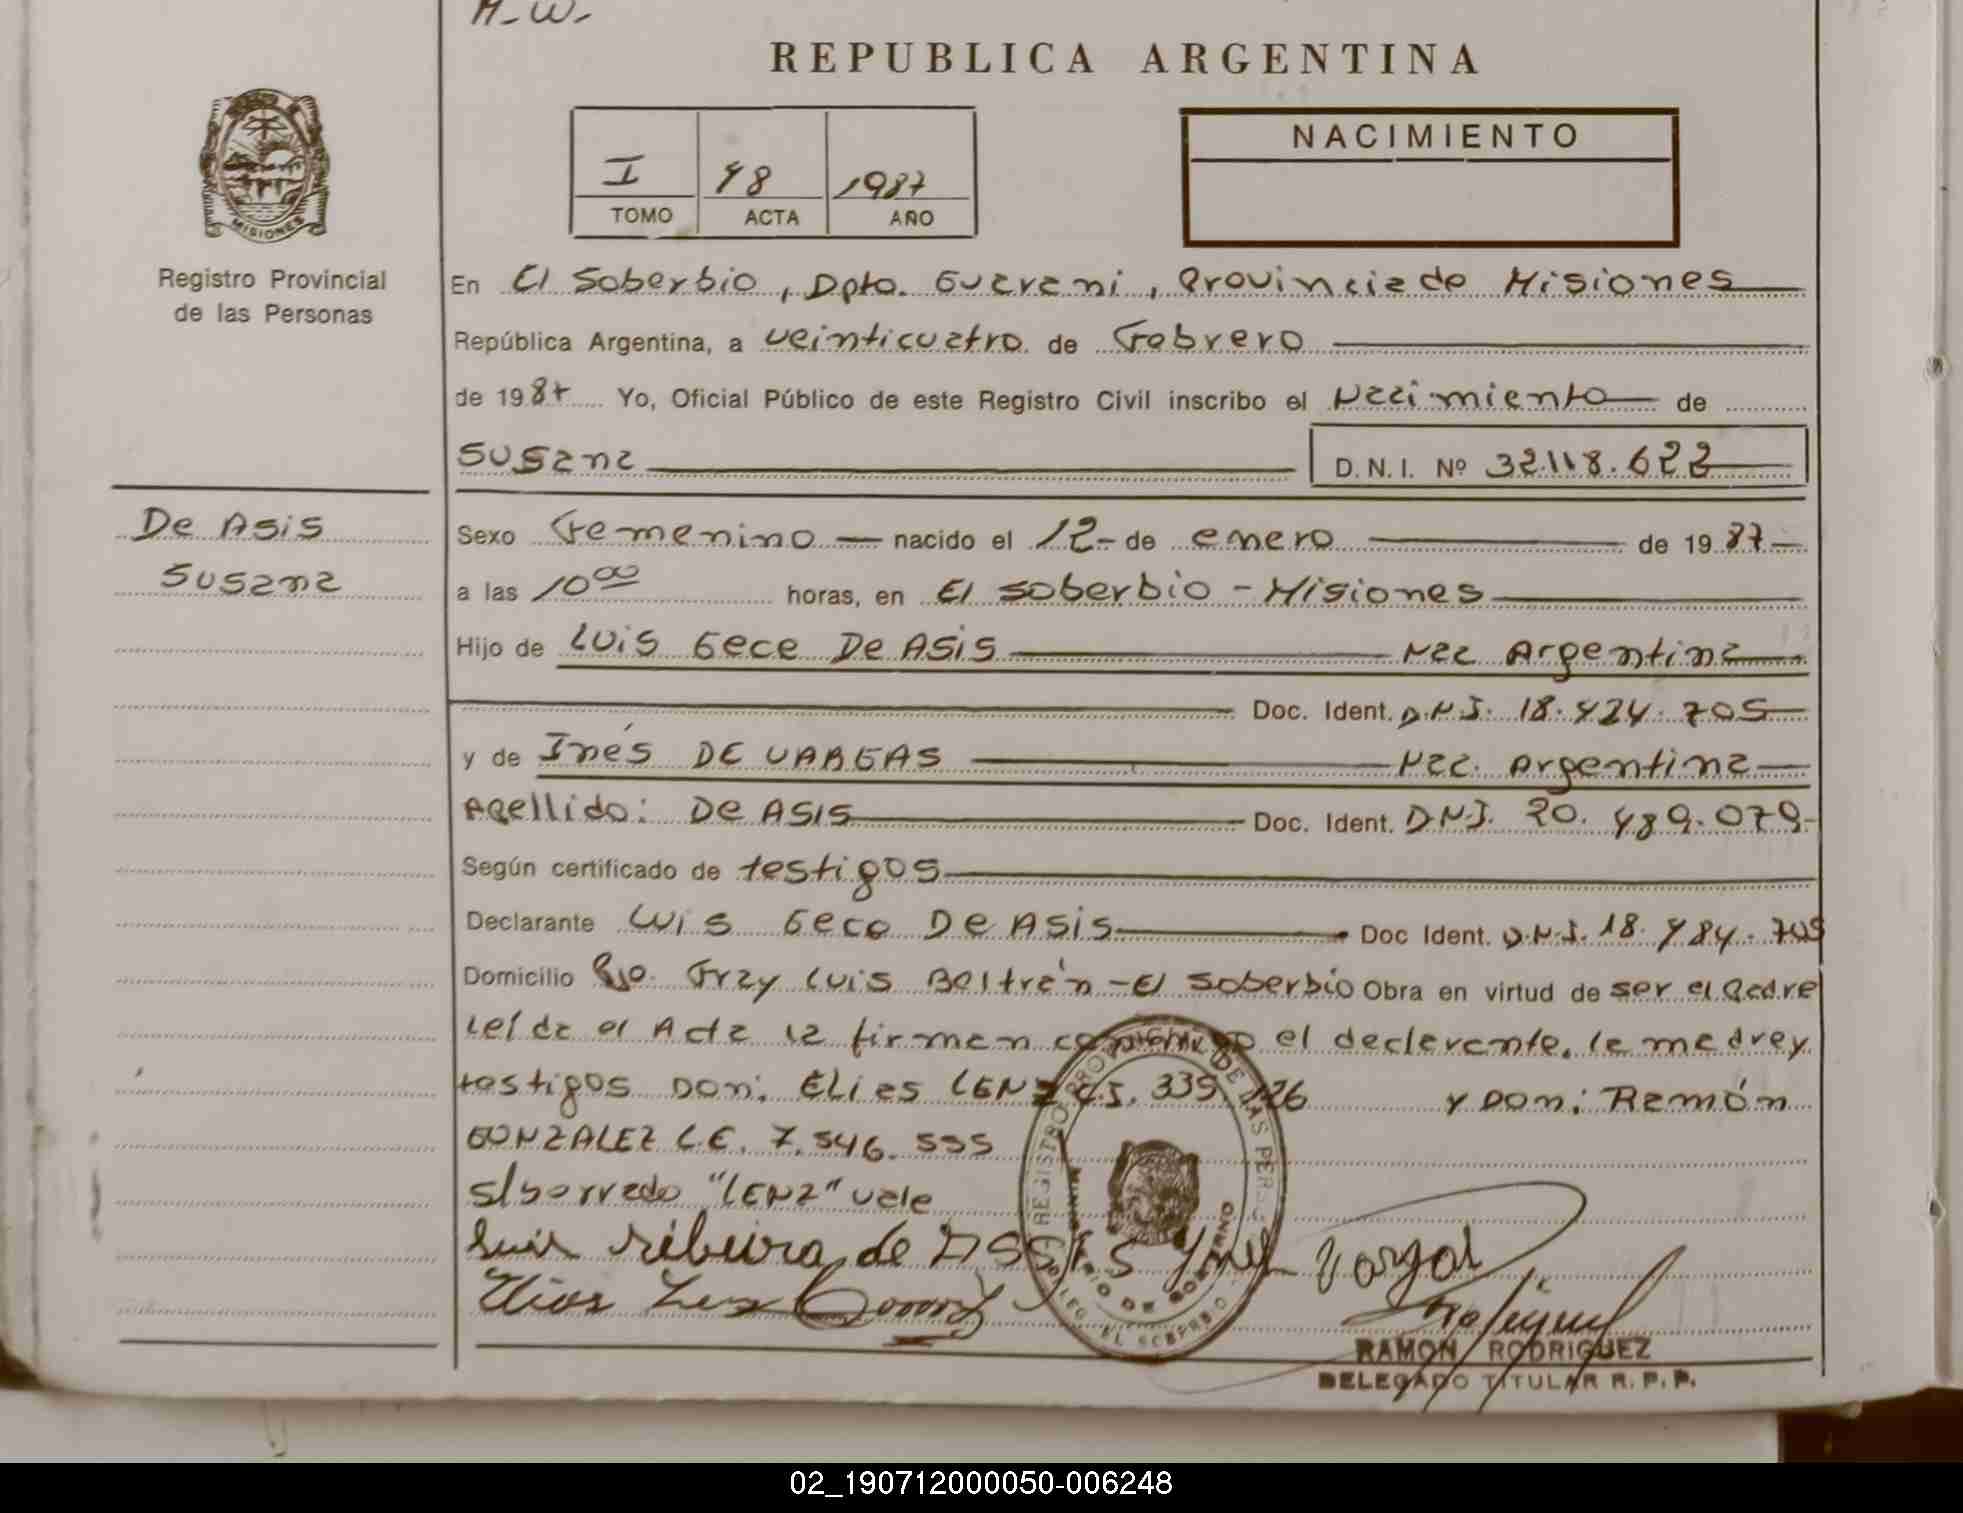 H-W-
REPUBLICA ARGENTINA
I 48 1987
TOMO ACTA AÑO
NACIMIENTO
MISIONES
Registro Provincial
de las Personas
En El Soberbio, Dpto. Guarani, Provincia de Misiones
República Argentina, a veinticuatro de Febrero
de 1987 Yo, Oficial Público de este Registro Civil inscribo el Nacimiento de
Susana D.N.I. Nº 32.118.622
De Asis
Susana
Sexo Femenino nacido el 12- de enero de 1987
a las 10 00 horas, en El Soberbio - Misiones
Hijo de Luis Geca De Asis Nac Argentina
Doc. Ident. D.N.I. 18.424.705
y de Inés DE VARGAS Nac. Argentina
Apellido: De Asis Doc. Ident. D.N.I. 20.489.079
Según certificado de testigos
Declarante Luis Geca De Asis Doc Ident. D.N.I. 18.484.705
Domicilio Bjo. Fray Luis Beltrán - El Soberbio Obra en virtud de ser el padre
Leída el Acta la firman conmigo el declarante, la madre y
testigos Don: Elias LENZ C.I. 339.126 y Don: Ramón
GONZALEZ L.E. 7.546.535
s/borrado "LENZ" vale
Luis ribeira de Assis Ynes Vargas
Elias Lenz
REGISTRO PROVINCIAL DE LAS PERS
MINISTERIO DE GOBIERNO
DELEG. EL SOBERBIO
RAMON RODRIGUEZ
DELEGADO TITULAR R.P.P.
02_190712000050-006248